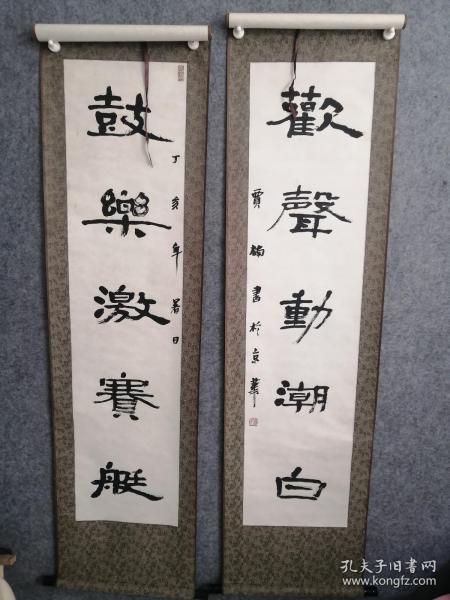 鼓樂激賽艇
丁亥年暑日
歡聲動潮白
賈楠書於京華
孔夫子旧书网
www.kongfz.com